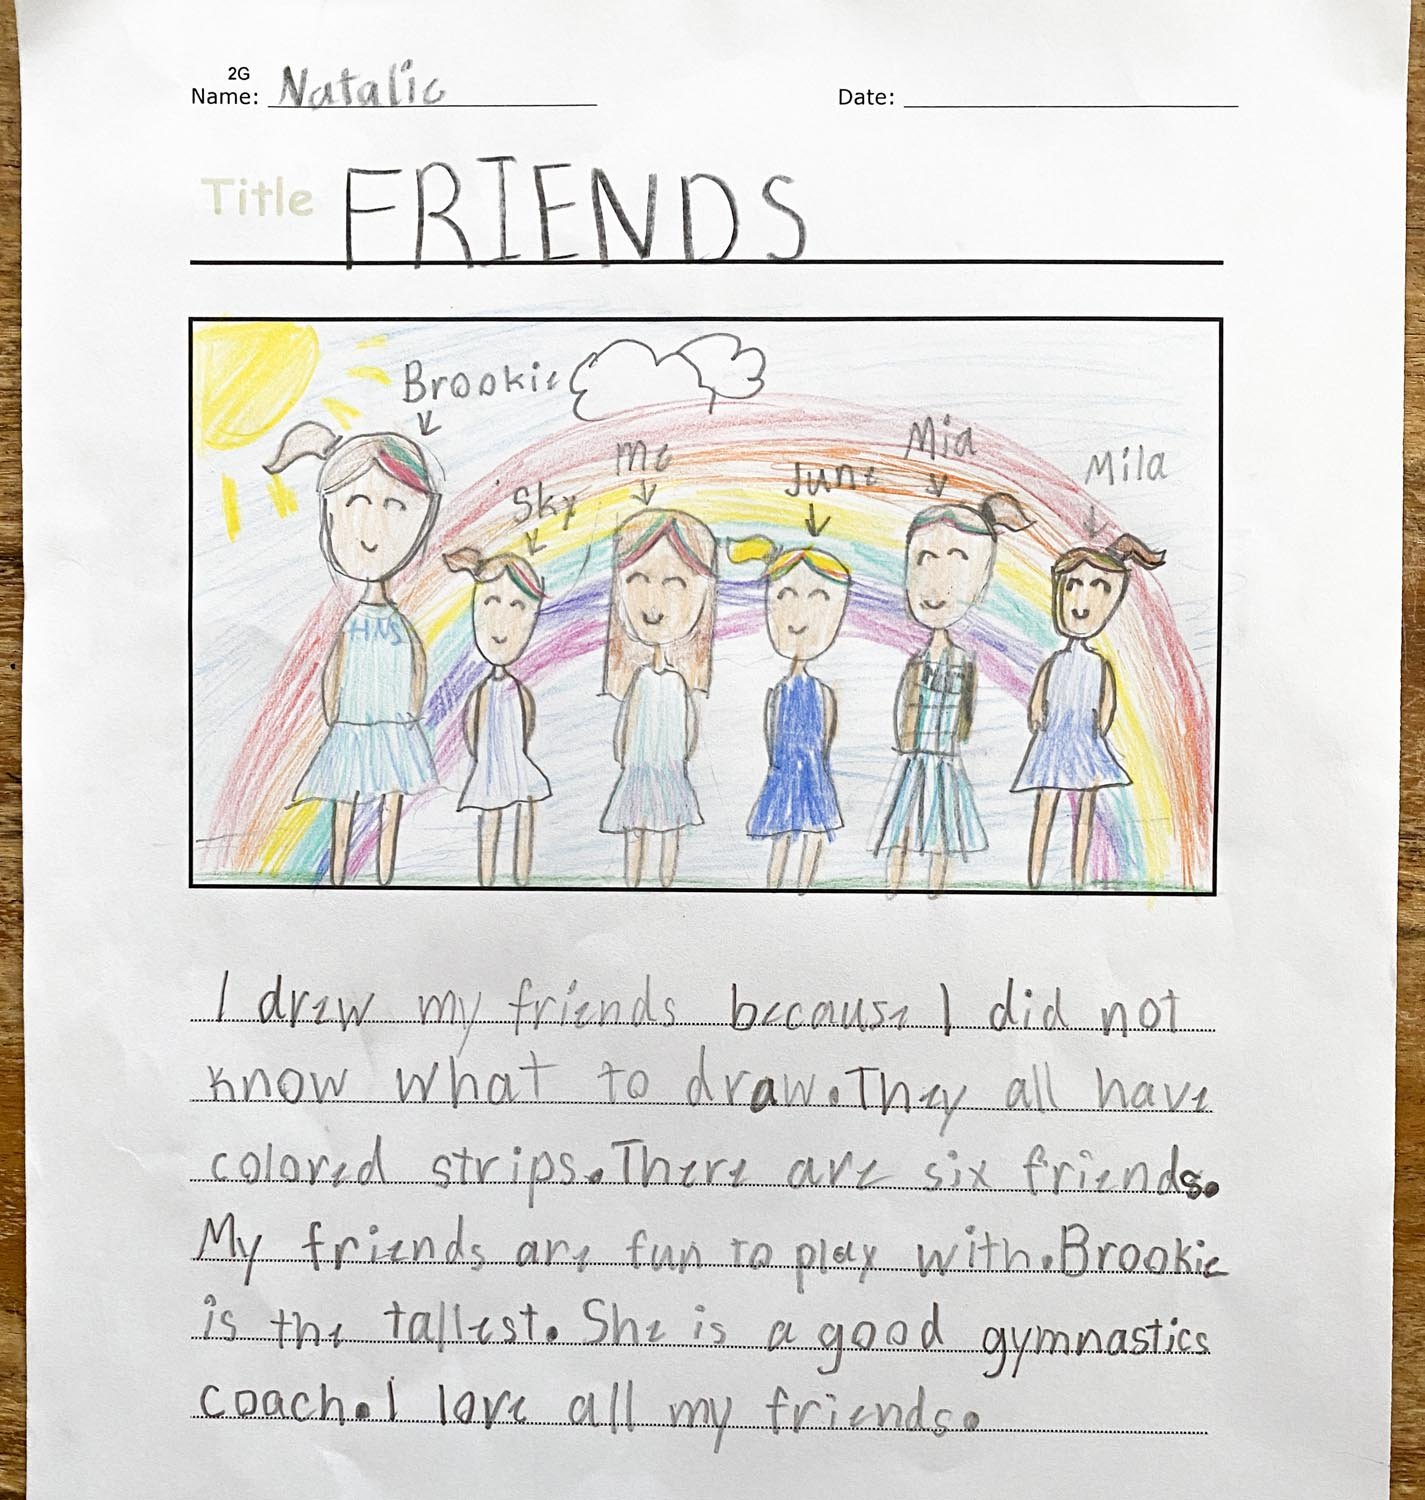 2G
Name: Natalie
Date:
Title FRIENDS
Brookie
Sky
me
June
Mia
Mila
HNS
I drew my friends because I did not
know what to draw. They all have
colored strips. There are six friends.
My friends are fun to play with. Brookie
is the tallest. She is a good gymnastics
coach. I love all my friends.